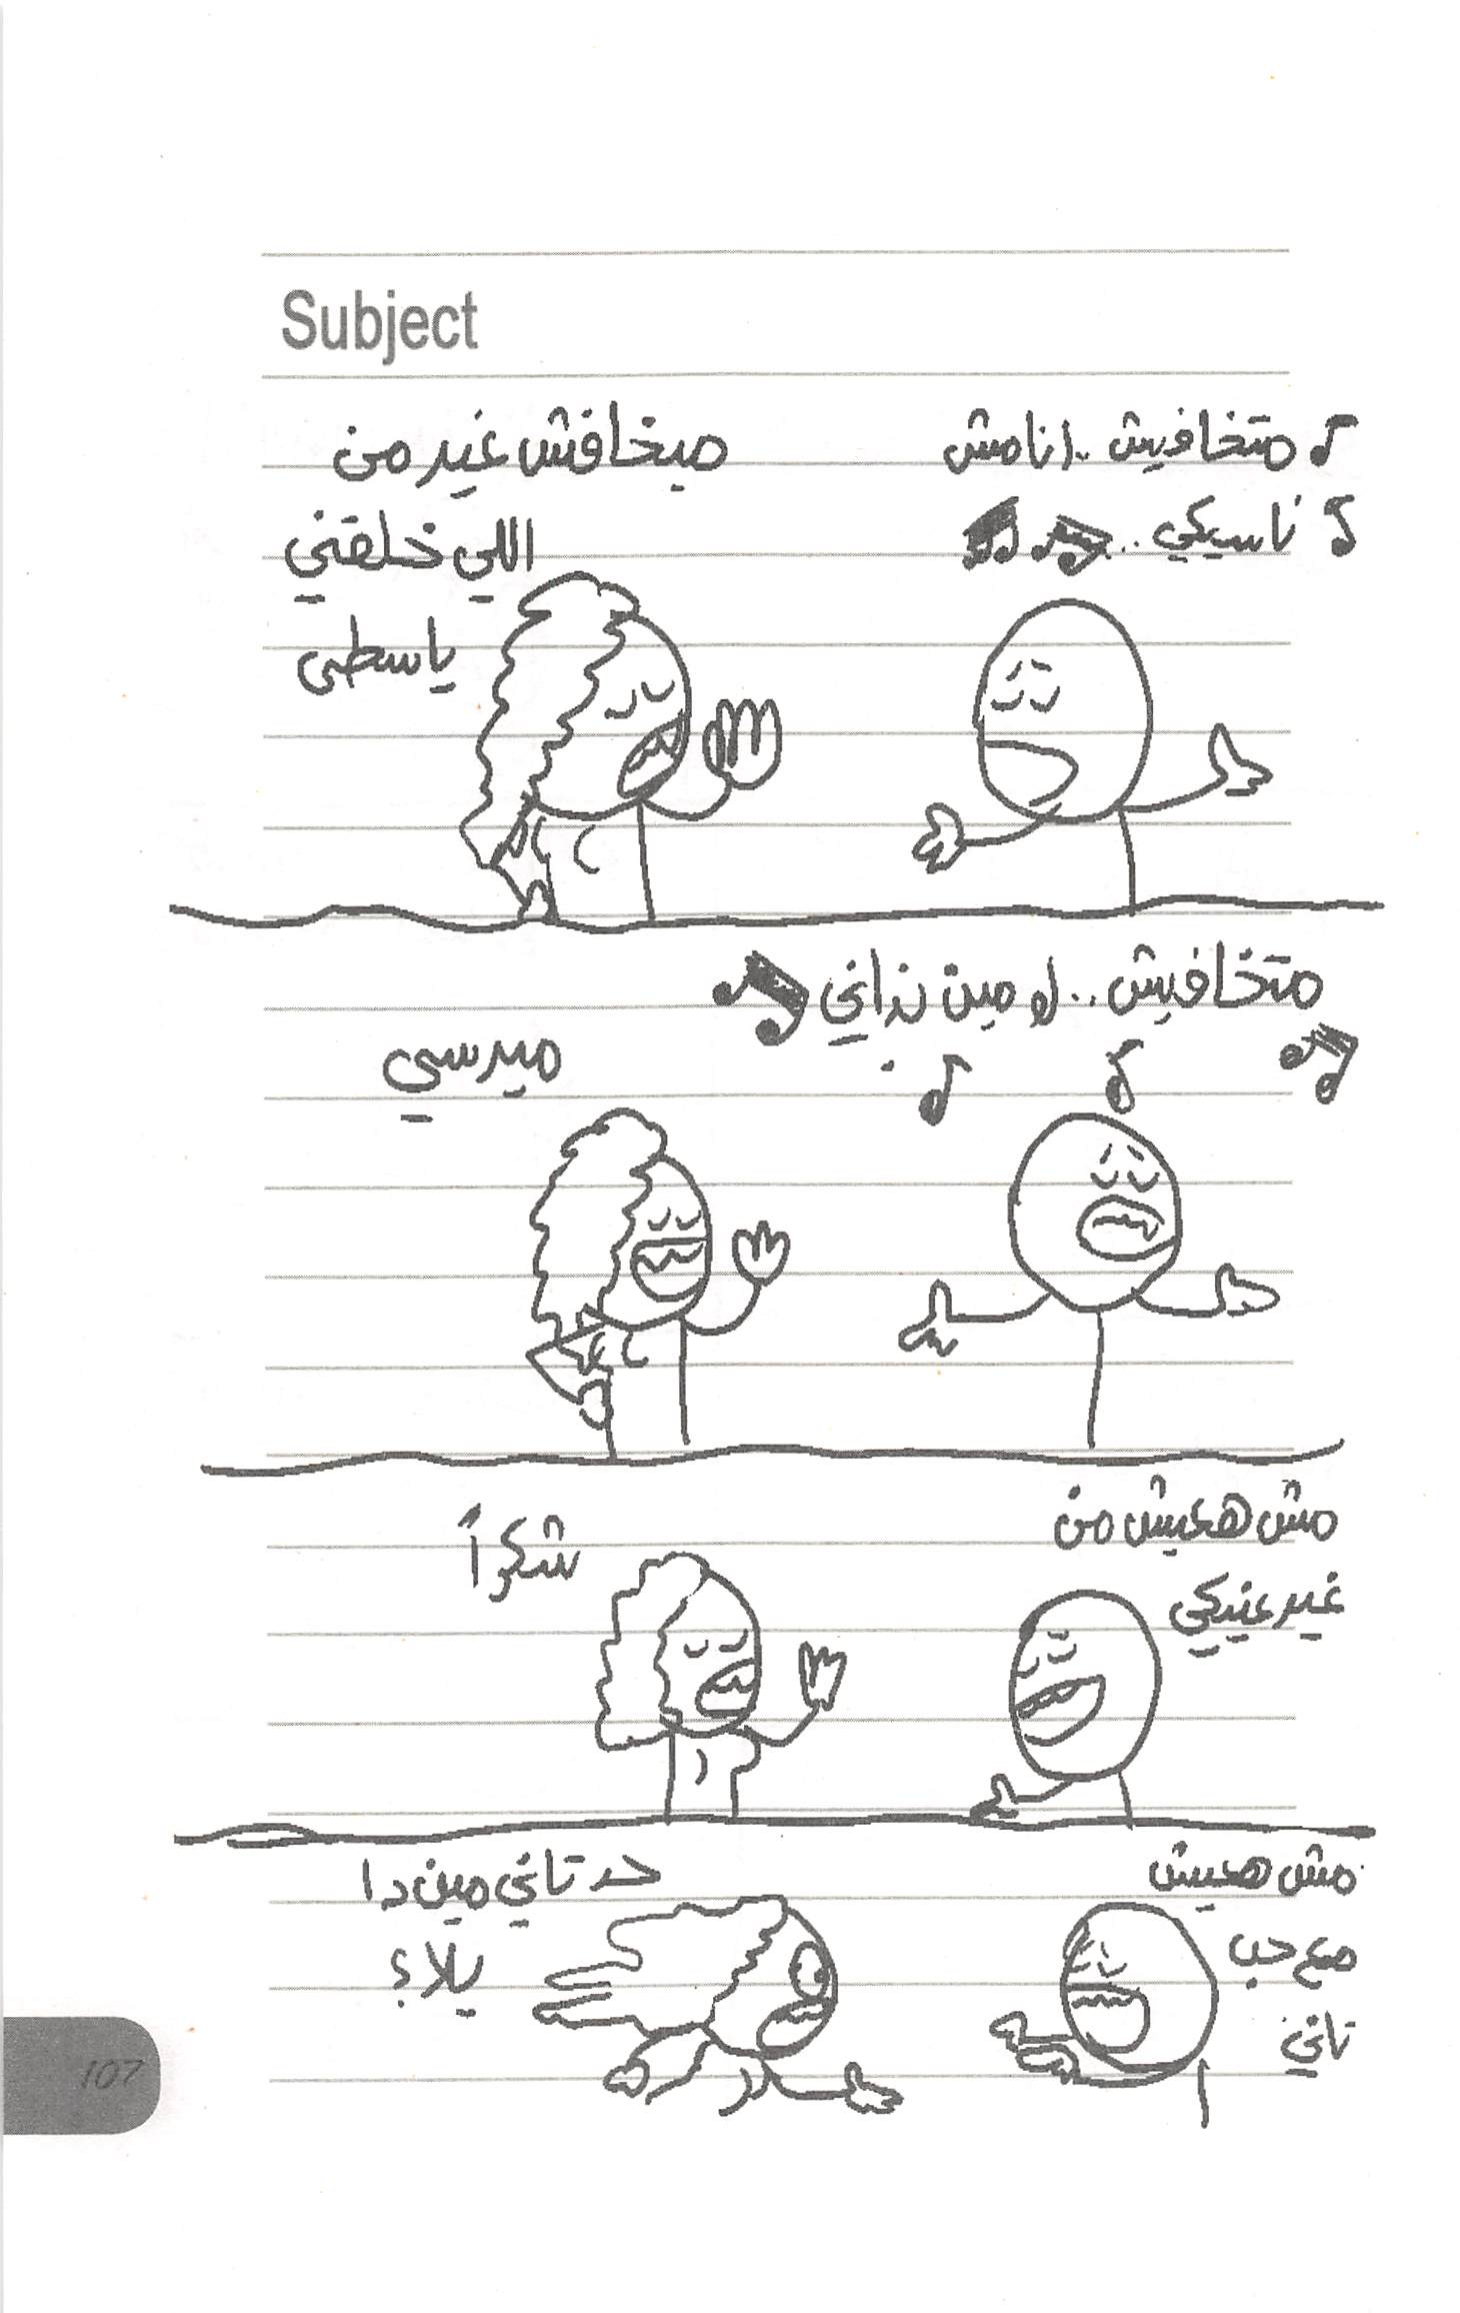 Subject
♪ متخافيش .. انا مش
♪ ناسيكي ..
مبخافش غير من
اللي خلقني
ياسطى
متخافيش .. لو مين نداني
ميرسي
مش هعيش من
غير عنيكي
شكراً
مش هعيش
مع حب
تاني
حد تاني مين دا
يلا؟
107